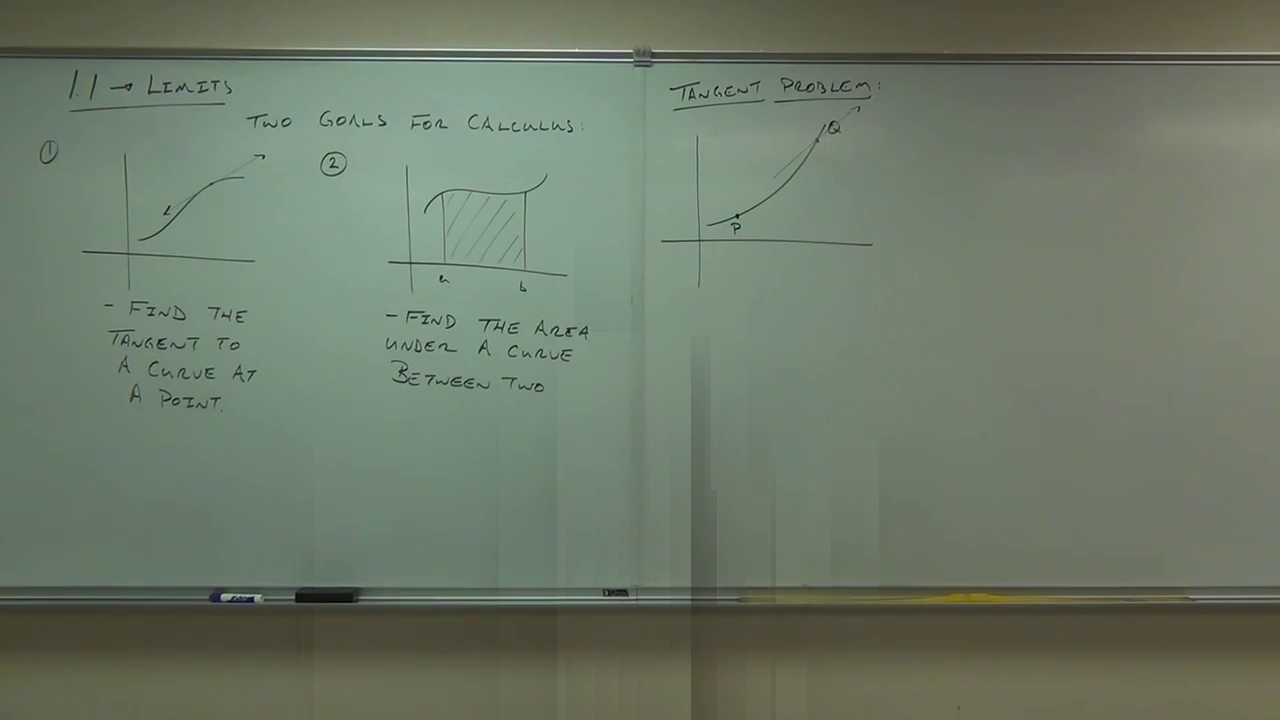 1.1 → LIMITS
TWO GOALS FOR CALCULUS:
①
②
a
b
- FIND THE
TANGENT TO
A CURVE AT
A POINT.
- FIND THE AREA
UNDER A CURVE
BETWEEN TWO
TANGENT PROBLEM:
Q
P